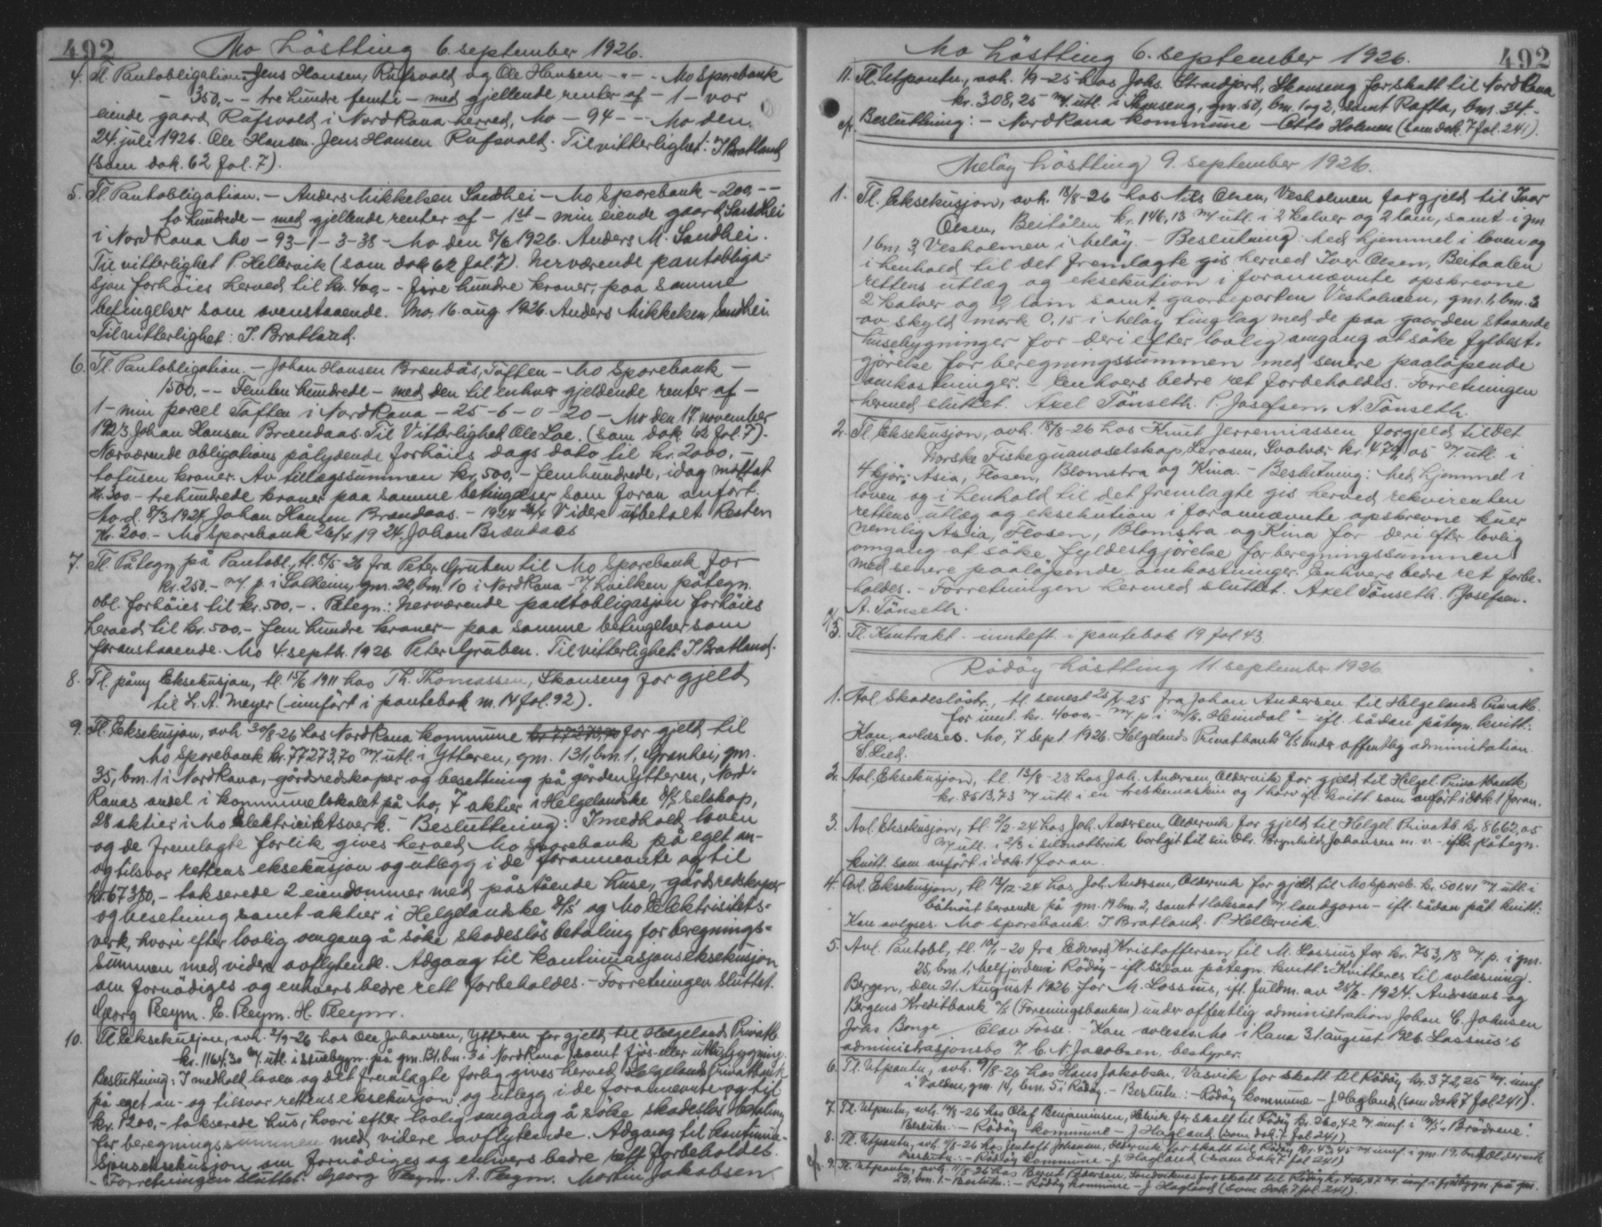 492
Mo Hösttting 6. september 1926.
4. Tl. Pantobligation. Jens Hansen, Rufsvold og Ole Hansen - " - - Mo Sparebank
- 350,- - tre hundre femti - med gjellende renter af - 1 - vor
eiende gaard Rufsvold i Nord Rana herred, Mo - 94 - - - Mo den
24. juli 1926. Ole Hansen. Jens Hansen Rufsvold. Til vitterlighet: I Bratland
(som dok. 62 fol. 7).
5. Tl. Pantobligation. - Anders Mikkelsen Sandhei - Mo Sparebank - 200, - -
to hundrede - med gjellende renter af - 1st - min eiende gaard Sandhei
i Nord Rana Mo - 93 - 1 - 3 - 38 - Mo den 8/6 1926. Anders M. Sandhei.
Til vitterlighet P. Hellervik (som dok 62 fol. 7). Nerværende pantobliga=
sjon forhöies herved til kr. 400, - - fire hundre kroner, paa samme
betingelser som ovenstaaende. Mo, 16 aug 1926. Anders Mikkelsen Sandhei
Til vitterlighet: I. Bratland.
6. Tl. Pantobligation. - Johan Hansen Brændås, Töffen - Mo Sparebank -
1500, - - Femten hundrede - med den til enhver gjeldende renter af -
1 - min parcel Toften i Nord Rana - 25 - 6 - 0 - 20 - Mo den 17. november
1923 Johan Hansen Brændaas. Til Vitterlighet Ole Loe. (som dok. 62 fol. 7).
Nærværende obligations pålydende forhöies dags dato til kr. 2000, -
totusen kroner. Av tillægssummen kr. 500, - femhundrede, idag mottat
kr. 300 - trehundrede kroner paa samme betingelser som foran anfört.
Mo d. 8/3 1924 Johan Hansen Brændaas. - 1924 26/4 Videre utbetalt Resten
kr. 200. - Mo Sparebank 26/4 1924. Johan Brændaas
7. Tl. Påtegn. på Pantobl., tl. 6/5-26 fra Peter Gruben til Mo Sparebank for
kr. 250. - m/ p. i gm. 22, bm. 10 i Nord Rana - m/ hvilken påtegn.
obl. forhöies til kr. 500, -. Påtegn.: Nerværende pantobligasjon forhöies
herved til kr. 500, - fem hundre kroner - paa samme betingelser som
foranstaaende. Mo 4. septb. 1926 Peter Gruben. Til vitterlighet: I Bratland.
8. Tl. påny Eksekusjon, tl. 15/6 1911 hos Th. Thomassen, Skanseng for gjeld
til L. A. Meyer (innfört i pantebok nr. 14 fol. 92).
9. Tl. Eksekusjon, avh. 30/8-26 hos Nord Rana kommune for gjeld til
Mo Sparebank kr. 77273,70 m/ utl. i Ytteren, gm. 131, bm. 1, Grønhei, gm.
35, bm. 1 i Nord Rana, gårdsredskaper og besetning på gården Ytteren, Nord-
Ranas andel i kommunelokalet på Mo, 7 aktier i Helgelandske D/S selskap,
28 aktier i Mo Elektricitetsverk. - Besluttning: I medhold loven
og de fremlagte forlik gives herved Mo Sparebank på eget an-
og tilsvar rettens eksekusjon og utlegg i de forannevnte og til
kr. 67350, - takserede 2 eiendommer med påstående huse, gårdsredskaper
og besetning samt aktier i Helgelandske D/S og Mo Elektrisitets=
verk, hvori efter lovlig omgang å söke skadeslös betaling for beregnings=
summen med videre avflytende. Adgang til kontinuasjonseksekusjon
om fornödiges og enhvers bedre rett forbeholdes. - Forretningen sluttet.
Georg Pleym. E. Pleym. H. Pleym.
10. Tl. Eksekusjon, avh. 2/9-26 hos Ole Johansen, Ytteren for gjeld til Helgelands Privatbk.
kr. 1164,30 m/ utl. i stuebygn. på gm. 131, bm. 3 i Nord Rana samt fjös- eller uthusbygning.
Besluttning: I medhold loven og det fremlagte forlig gives herved Helgelands Privatbank
på eget an- og tilsvar rettens eksekusjon og utlegg i de forannevnte og til
kr. 1200, - takserede hus, hvori efter lovlig omgang å söke skadeslös betaling
for beregningssummen med videre avflytende. Adgang til kontinua-
sjonseksekusjon om fornödiges og enhvers bedre rett forbeholdes.
- Forretningen sluttet. Georg Pleym. A. Pleym. Martin Jakobsen
Mo höstting 6. september 1926.
492
11. Tl. Utpantn., avh. 1/9-25 hos Johs. Strandjord, Skanseng for skatt til Nord Rana
kr. 308,25 m/ utl. i Skanseng, gm. 50, bm. 1 og 2, samt Rafta, bm. 34. -
Besluttning: - Nord Rana kommune - Otto Holmen (som dok. 7 fol. 241).
Melöy höstting 9. september 1926.
1. Tl. Eksekusjon, avh. 18/8-26 hos Nils Olsen, Vesholmen for gjeld til Ivar
Olsen, Beitålen kr. 146,13 m/ utl. i 2 kalver og 2 lam, samt i gm
1 bm. 3, Vesholmen i Melöy. - Beslutning: Med hjemmel i loven og
i henhold til det fremlagte gis herved Ivar Olsen, Beitaalen
rettens utlæg og eksekution i forannævnte opskrevne
2 kalver og 2 lam samt gaardparten Vesholmen, gm. 1, bm. 3
av skyld mark 0,15 i Melöy tinglag med de paa gaarden staaende
husebygninger for deri efter lovlig omgang at söke fyldest-
gjörelse for beregningssummen med senere paalöpende
omkostninger. - Enhvers bedre ret forbeholdes. Forretningen
hermed sluttet. Axel Tönseth. P. Josefsen. A. Tönseth.
2. Tl. Eksekusjon, avh. 18/8-26 hos Knut Jerremiassen for gjeld til det
Norske Fiskeguanoselskap, Lerosen, Svolvær kr. 474,05 m/ utl. i
4 kjör: Asia, Flosen, Blomstra og Kina. - Beslutning: Med hjemmel i
loven og i henhold til det fremlagte gis herved rekvirenten
rettens utlæg og eksekution i forannævnte opskrevne kuer
nemlig Asia, Flosen, Blomstra og Kina for deri efter lovlig
omgang at söke fyldestgjörelse for beregningssummen
med senere paalöpende omkostninger. Enhvers bedre ret forbe-
holdes. - Forretningen hermed sluttet. Axel Tönseth. P Josefsen.
A. Tönseth.
3. Tl. Kontrakt. innheft i pantebok 19 fol 43
Rödöy höstting 11. september 1926
1. Avl. Skadeslösbr., tl. senest 25/4-25 fra Johan Andersen til Helgelands Privatb.
for innt. kr. 4000, - m/ p. i m/k. Heimdal" - ifl. sådan påtegn. kvitt:
Kan avlæses. Mo, 7 Sept 1926. Helgelands Privatbank A/S under offentlig administation.
2. Avl. Eksekusjon, tl. 13/8-23 hos Joh. Andersen, Oldervik for gjeld til Helgel. Privatbank
kr. 8513,73 m/ utl. i en treskemaskin og 1 harv ifl. kvitt. som anfört i dok 1 foran.
3. Avl. Eksekusjon, tl. 2/2-24 hos Joh. Andersen, Oldervik for gjeld til Helgel. Privatb. kr. 8662,05
m/ utl. i 2/3 i bortgit til sin dtr. Brynhild Johansen m. v. - ifl. påtegn.
kvitt. som anfört i dok 1 foran.
4. Avl. Eksekusjon, tl. 13/12-24 hos Joh. Andersen, Oldervik for gjeld til Mo Spareb. kr. 501,41 m/ utl. i
beroende på gm. 19 bm. 2, samt 1 m/ landgarn - ifl. sådan påt. kvitt:
Kan avlyses. Mo Sparebank. I Bratland. P Hellervik
5. Avl. Pantobl., tl. -20 fra Edvard Kristoffersen til M. Lossius for kr. 753,18 m/ p. i gm.
28, bm. 1, i Rödöy - ifl. sådan påtegn. kvitt: Kvitteres til avlæsning.
Bergen, den 21. August 1926 for M. Lossius, ifl. fuldm. av 25/2-1924. Andresens og
Bergens Kreditbank A/S (Foreningsbanken) under offentlig administration Johan C. Johnsen
Olav Fosse. - Kan avleses. Mo i Rana 31 august 1926. Lossius's
administrasjonsbo v. C. N. Jacobsen, bestyrer.
6. Tl. Utpantn., avh. 9/8-26 hos Hans Jakobsen, Vasvik for skatt til Rödöy kr. 372,25 m/ innf.
i Valden, gm. 14, bm. 5 i Rödöy. - Beslutn.: - Rödöy kommune - J Hagland (som dok 7 fol 241).
7. Tl. Utpantn., avh. -26 hos Olaf Benjaminsen, for skatt til Rödöy kr. 260,42 m/ innf. i m/k. "Brödrene".
Beslutn: - Rödöy kommune - J Hagland (som dok. 7 fol 241)
8. Tl. Utpantn., avh. 9/8-26 hos Johansen, Oldervik for skatt til Rödöy kr. 43,45 m/ innf. i gm. 19, bm. 2 Oldervik
Beslutn: - Rödöy kommune - J Hagland (som dok 7 fol 241)
9. Tl. Utpantn., avh. 11/8-26 hos for skatt til Rödöy m/ innf. i på gm.
23, bm. 1. - Beslutn.: - Rödöy kommune - J Hagland (som dok. 7 fol. 241).